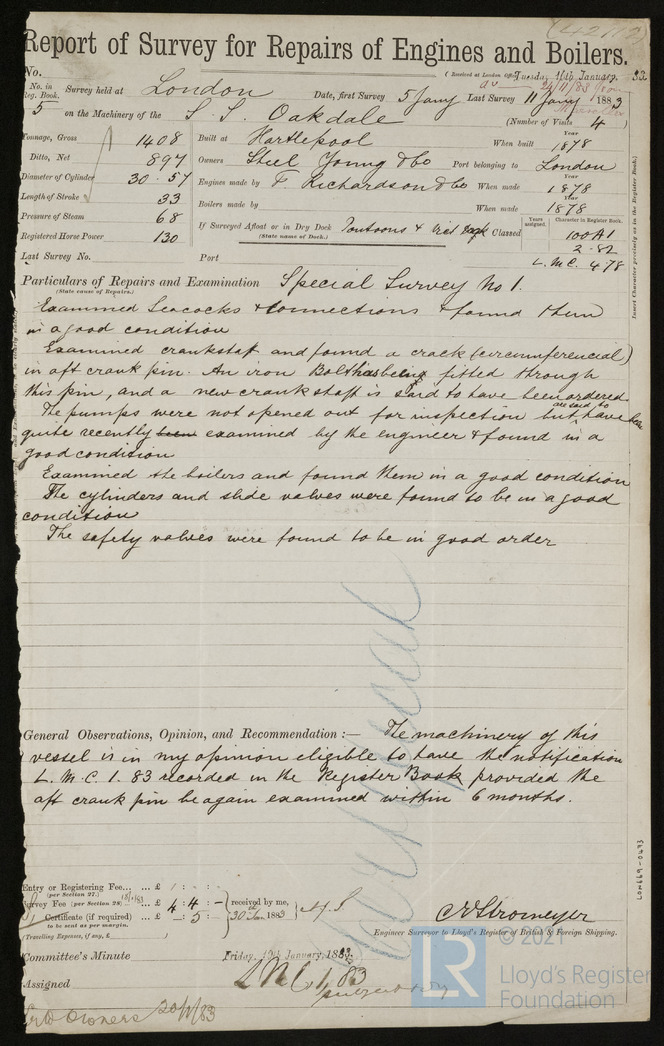 Report of Survey for Repairs of Engines and Boilers.
No.
(Received at London Office, Tuesday 16th January, 83
No. in Reg. Book. 5
Survey held at London Date, first Survey 5 Jany Last Survey 11 Jany 1883
on the Machinery of the S. S. Oakdale (Number of Visits 4)
Tonnage, Gross 1408 Built at Hartlepool When built Year 1878
Ditto, Net 897 Owners Steel Young & Co Port belonging to London
Diameter of Cylinder 30 · 57 Engines made by T. Richardson & Co When made Year 1878
Length of Stroke 33 Boilers made by When made Year 1878
Pressure of Steam 68 If Surveyed Afloat or in Dry Dock Pontoons & Vict Dock Classed Years assigned. Character in Register Book. 100A1
(State name of Dock.)
Registered Horse Power 130 2·82
Last Survey No. Port L.M.C. 4·78
Insert Character precisely as in the Register Book.)
Particulars of Repairs and Examination Special Survey No 1.
(State cause of Repairs.)
Examined Seacocks & connections & found them
in a good condition
Examined crankshaft and found a crack (circumferencial)
in aft crank pin. An iron Bolt has being fitted through
this pin, and a new crankshaft is said to have been ordered
The pumps were not opened out for inspection but are said to have been
quite recently been examined by the engineer & found in a
good condition
Examined the boilers and found them in a good condition
The cylinders and slide valves were found to be in a good
condition
The safety valves were found to be in good order
General Observations, Opinion, and Recommendation :— The machinery of this
vessel is in my opinion eligible to have the notification
L. M. C. 1. 83 recorded in the Register Book provided the
aft crank pin be again examined within 6 months.
LON669-0493
Entry or Registering Fee... ... £ : :
(per Section 27.)
Survey Fee (per Section 28) £ 4 : 4 : — received by me,
Certificate (if required) ... £ — 5 : 30th Jan 1883
to be sent as per margin.
(Travelling Expenses, if any, £ )
C E Stromeyer
Engineer Surveyor to Lloyd's Register of British & Foreign Shipping.
Committee's Minute Friday, 19th January, 1883.
Assigned L.M.C. 1,83
subject to
Owners 20/1/83
LR
© 2021
Lloyd's Register
Foundation